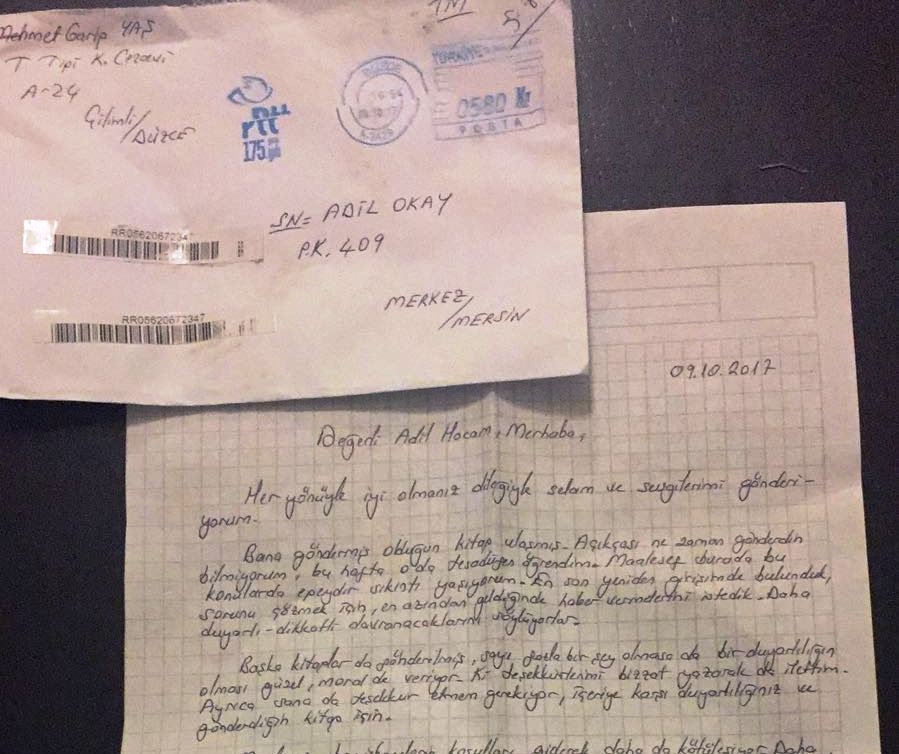 Mehmet Garip YAŞ
T Tipi K. Cezaevi
A-24
Çilimli/DÜZCE
ptt
175
TÜRKİYE
0580 Kr
POSTA
SN= ADİL OKAY
P.K. 409
MERKEZ/MERSİN
RR0562067234
RR05620672347
09.10.2017
Değerli Adil Hocam, Merhaba,
Her yönüyle iyi olmanız dileğiyle selam ve sevgilerimi gönderi-
yorum.
Bana göndermiş olduğun kitap ulaşmış. Açıkçası ne zaman gönderdin
bilmiyorum, bu hafta o da tesadüfen öğrendim. Maalesef burada bu
konularda epeydir sıkıntı yaşıyorum. En son yeniden girişimde bulunduk,
sorunu çözmek için, en azından geldiğinde haber vermelerini istedik. Daha
duyarlı-dikkatli davranacaklarını söylüyorlar.
Başka kitaplar da gönderilmiş, sayı fazla bir şey olmasa da bir duyarlılığın
olması güzel, moral de veriyor. Ki teşekkürlerimi bizzat yazarak da ilettim.
Ayrıca sana da teşekkür etmem gerekiyor, içeriye karşı duyarlılığınız ve
gönderdiğin kitap için.
koşulları giderek daha da kötüleşiyor. Daha